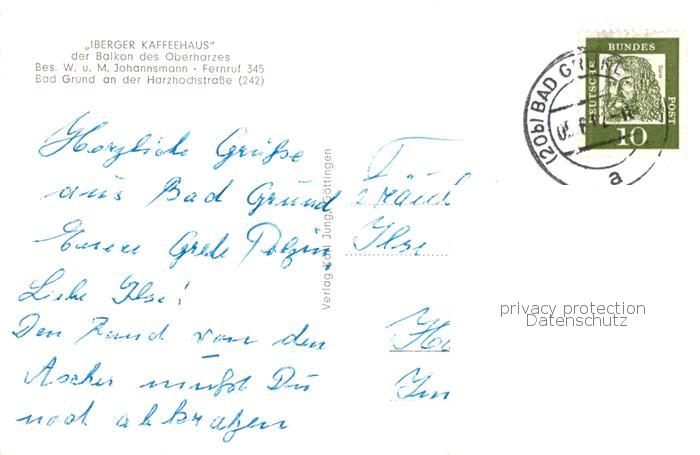 „IBERGER KAFFEEHAUS"
der Balkon des Oberharzes
Bes. W. u. M. Johannsmann · Fernruf 345
Bad Grund an der Harzhochstraße (242)
DEUTSCHE BUNDES POST
Dürer
10
(20b) BAD GRUND
a
Herzliche Grüße
aus Bad Grund
Eurere Grete Polzin,
Liebe Ilse!
Den Rand von den
Ascher mußt Du
noch abkratzen
Verlag Karl Jung, Göttingen
Fräul
Ilse
privacy protection
Datenschutz